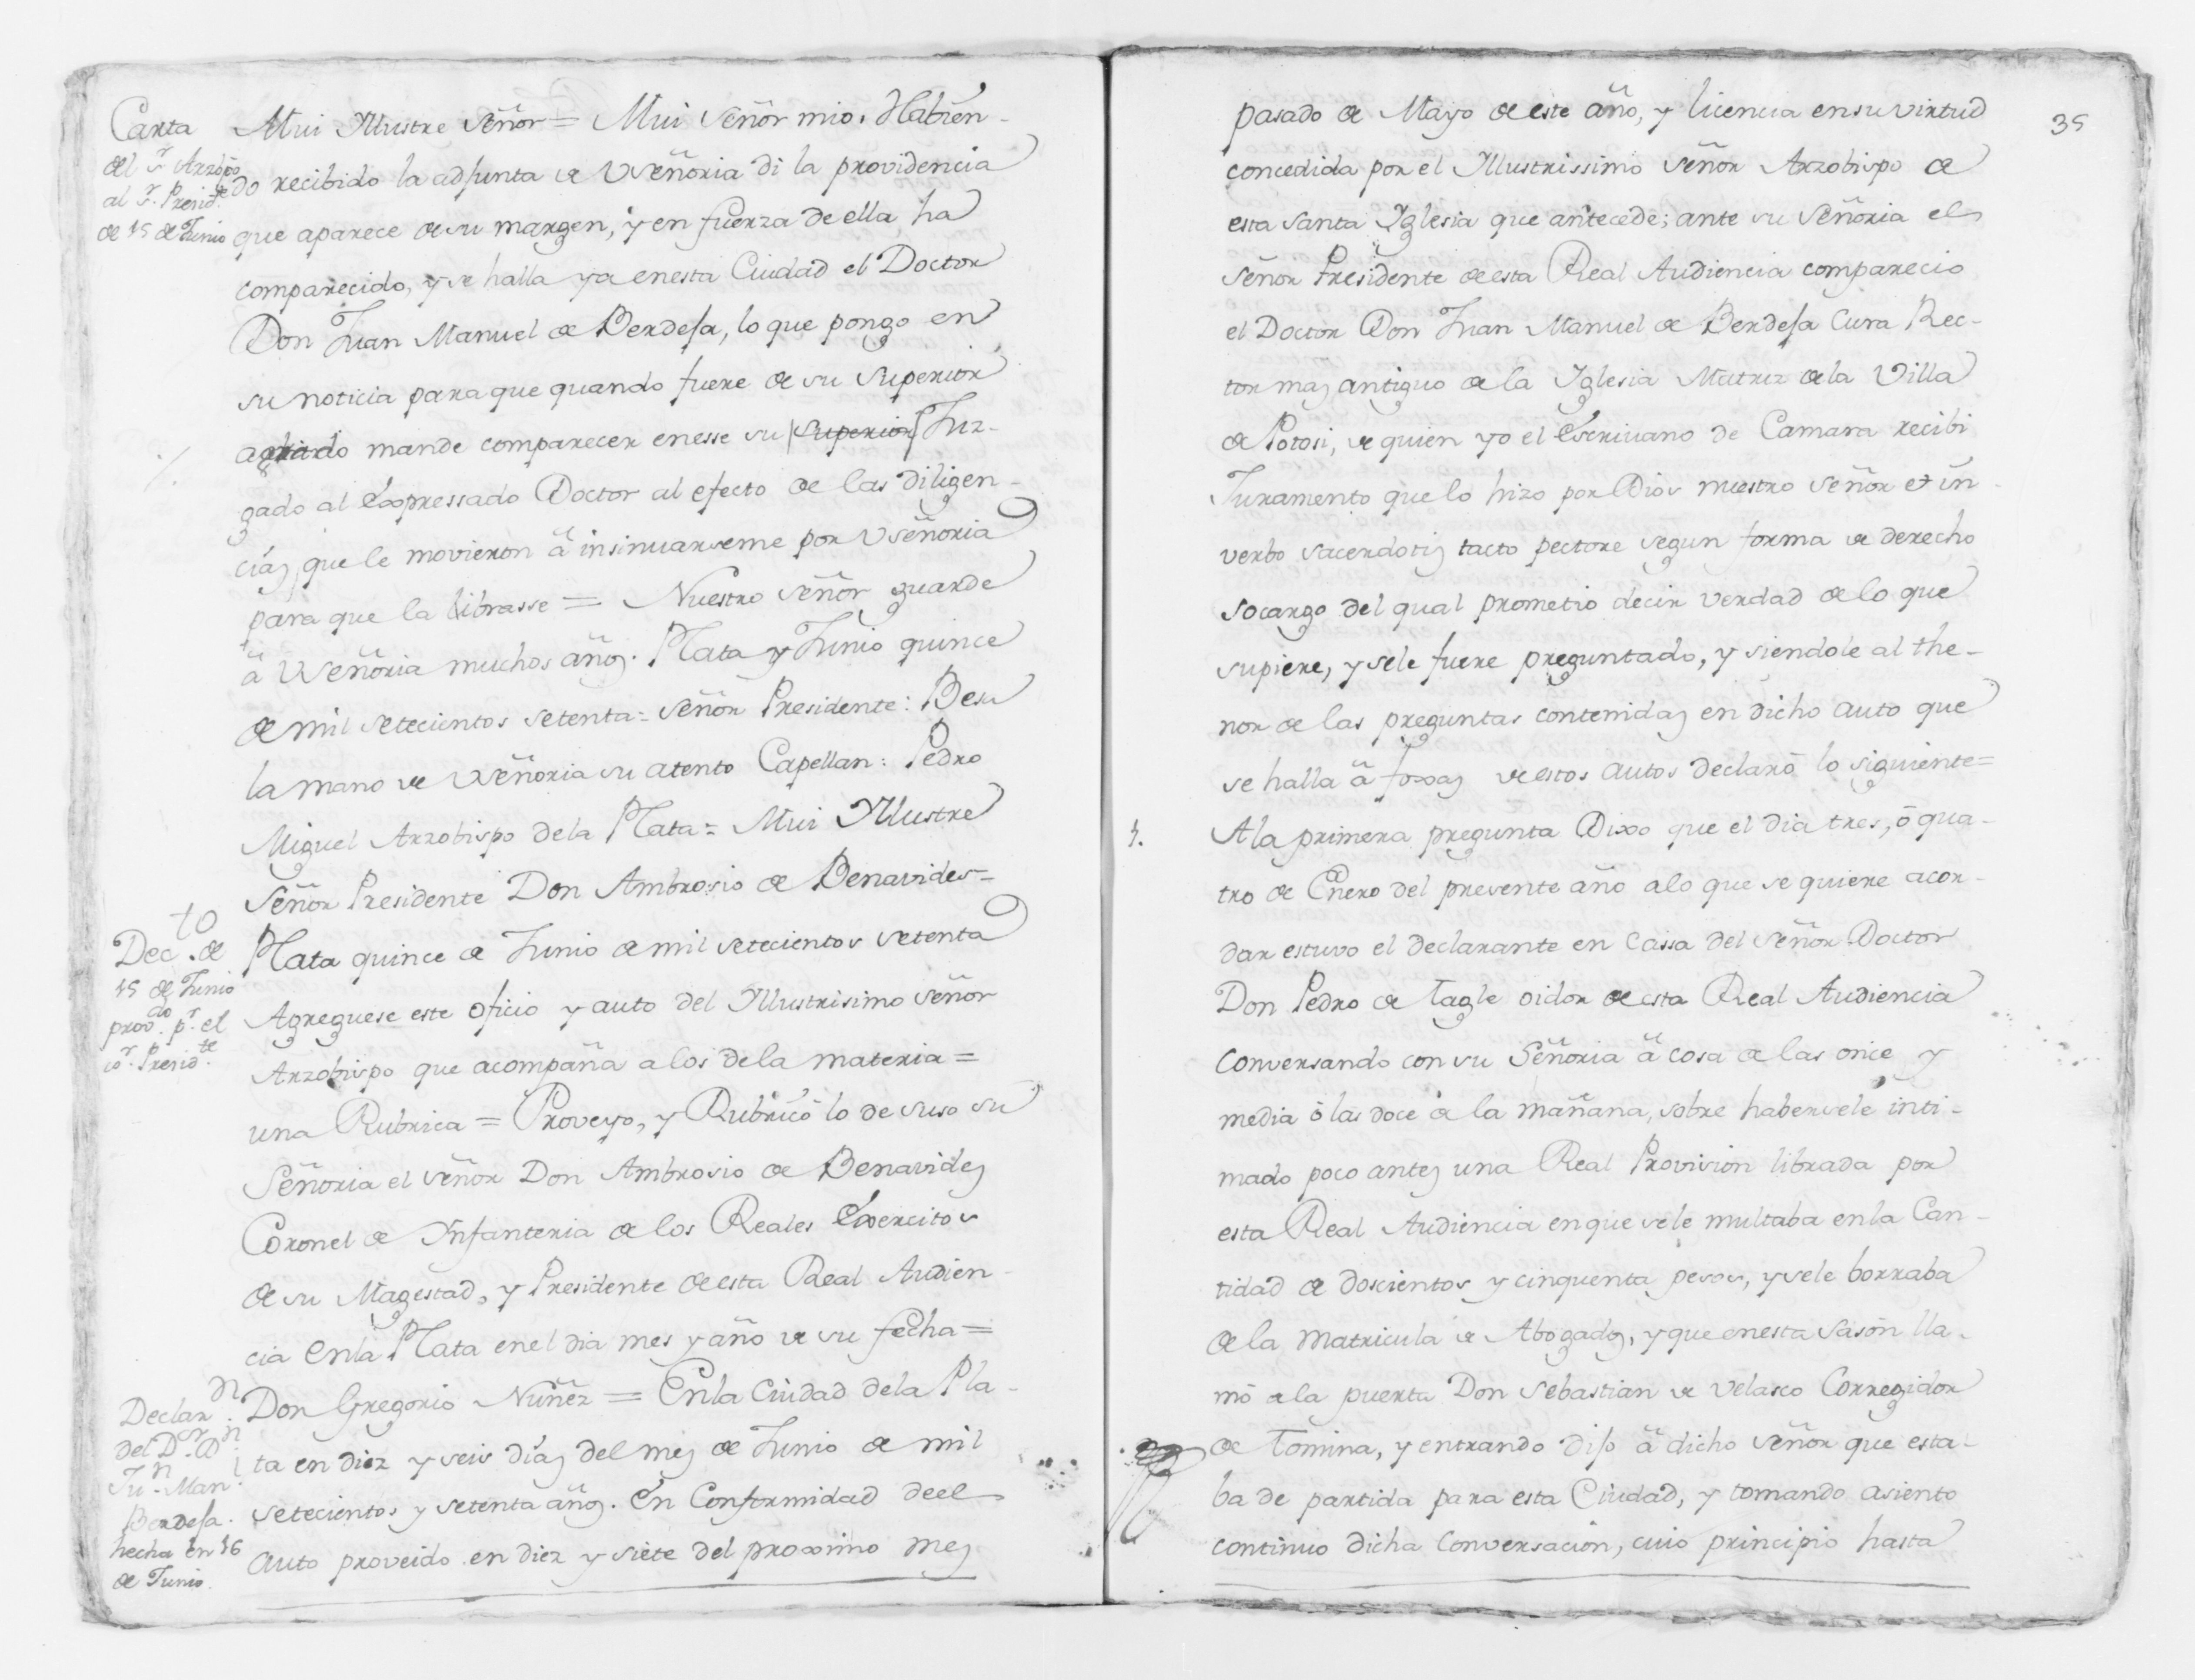 Carta
del Sr. Arzobpo
al Sr. Presidte
de 15 de Junio
Mui Yllustre Señor = Mui Señor mio. Habien-
do recibido la adjunta de VSeñoria di la providencia
que aparece de su margen, y en fuerza de ella ha
comparecido, y se halla ya enesta Ciudad el Doctor
Don Juan Manuel de Berdesa, lo que pongo en
su noticia para que quando fuere de su Superior
agrado mande comparecer enesse su Superior Juz-
gado al Expressado Doctor al efecto de las diligen-
cias, que le movieron â insinuarseme por VSeñoria
para que la librasse = Nuestro Señor guarde
â VSeñoria muchos años. Plata y Junio quince
de mil setecientos setenta = Señor Presidente: Besa
la mano de VSeñoria su atento Capellan: Pedro
Miguel Arzobispo dela Plata = Mui Yllustre
Señor Presidente Don Ambrosio de Benavides =
Decto. de
15 de Junio
provdo. pr. el
sor. Presidte.
Plata quince de Junio de mil setecientos setenta
Agreguese este oficio y auto del Yllustrisimo Señor
Arzobispo que acompaña a los dela materia =
una Rubrica = Proveyo, y Rubricô lo de suso su
Señoria el Señor Don Ambrosio de Benavides
Coronel de Ynfanteria de los Reales Exercitos
de su Magestad, y Presidente de esta Real Audien-
cia Enla Plata enel dia mes y año de su fecha =
Declarn.
del Dr. Dn
Jun. Manl.
Berdesa.
hecha en 16
de Junio.
Don Gregorio Nuñez = Enla Ciudad dela Pla-
ta en diez y seis dias del mes de Junio de mil
setecientos y setenta años. En Conformidad deel
auto proveido en diez y siete del proximo mes
35
pasado de Mayo de este año, y licencia ensu virtud
concedida por el Yllustrissimo Señor Arzobispo de
esta Santa Yglesia que antecede; ante su Señoria el
Señor Presidente de esta Real Audiencia comparecio
el Doctor Don Juan Manuel de Berdesa Cura Rec-
tor mas antiguo de la Yglesia Matriz dela Villa
de Potosi, de quien yo el Escrivano de Camara recibi
Juramento que lo hizo por Dios nuestro Señor et in
verbo sacerdotis tacto pectore segun forma de derecho
socargo del qual prometio decir verdad de lo que
supiere, y sele fuere preguntado, y siendole al the-
nor de las preguntas contenidas en dicho auto que
se halla â foxas de estos autos declarô lo siguiente =
1. A la primera pregunta Dixo que el dia tres, ô qua-
tro de Enero del presente año a lo que se quiere acor-
dar estuvo el declarante en Cassa del Señor Doctor
Don Pedro de Tagle oidor de esta Real Audiencia
Conversando con su Señoria â cosa de las once y
media ô las doce de la mañana, sobre habersele inti-
mado poco antes una Real Provision librada por
esta Real Audiencia enque sele multaba enla Can-
tidad de doscientos y cinquenta pesos, y sele borraba
de la Matricula de Abogados, y que enesta Sason lla-
mô a la puerta Don Sebastian de Velasco Corregidor
de Tomina, y entrando dijo â dicho Señor que esta-
ba de partida para esta Ciudad, y tomando asiento
continuo dicha Conversacion, cuio principio hasta